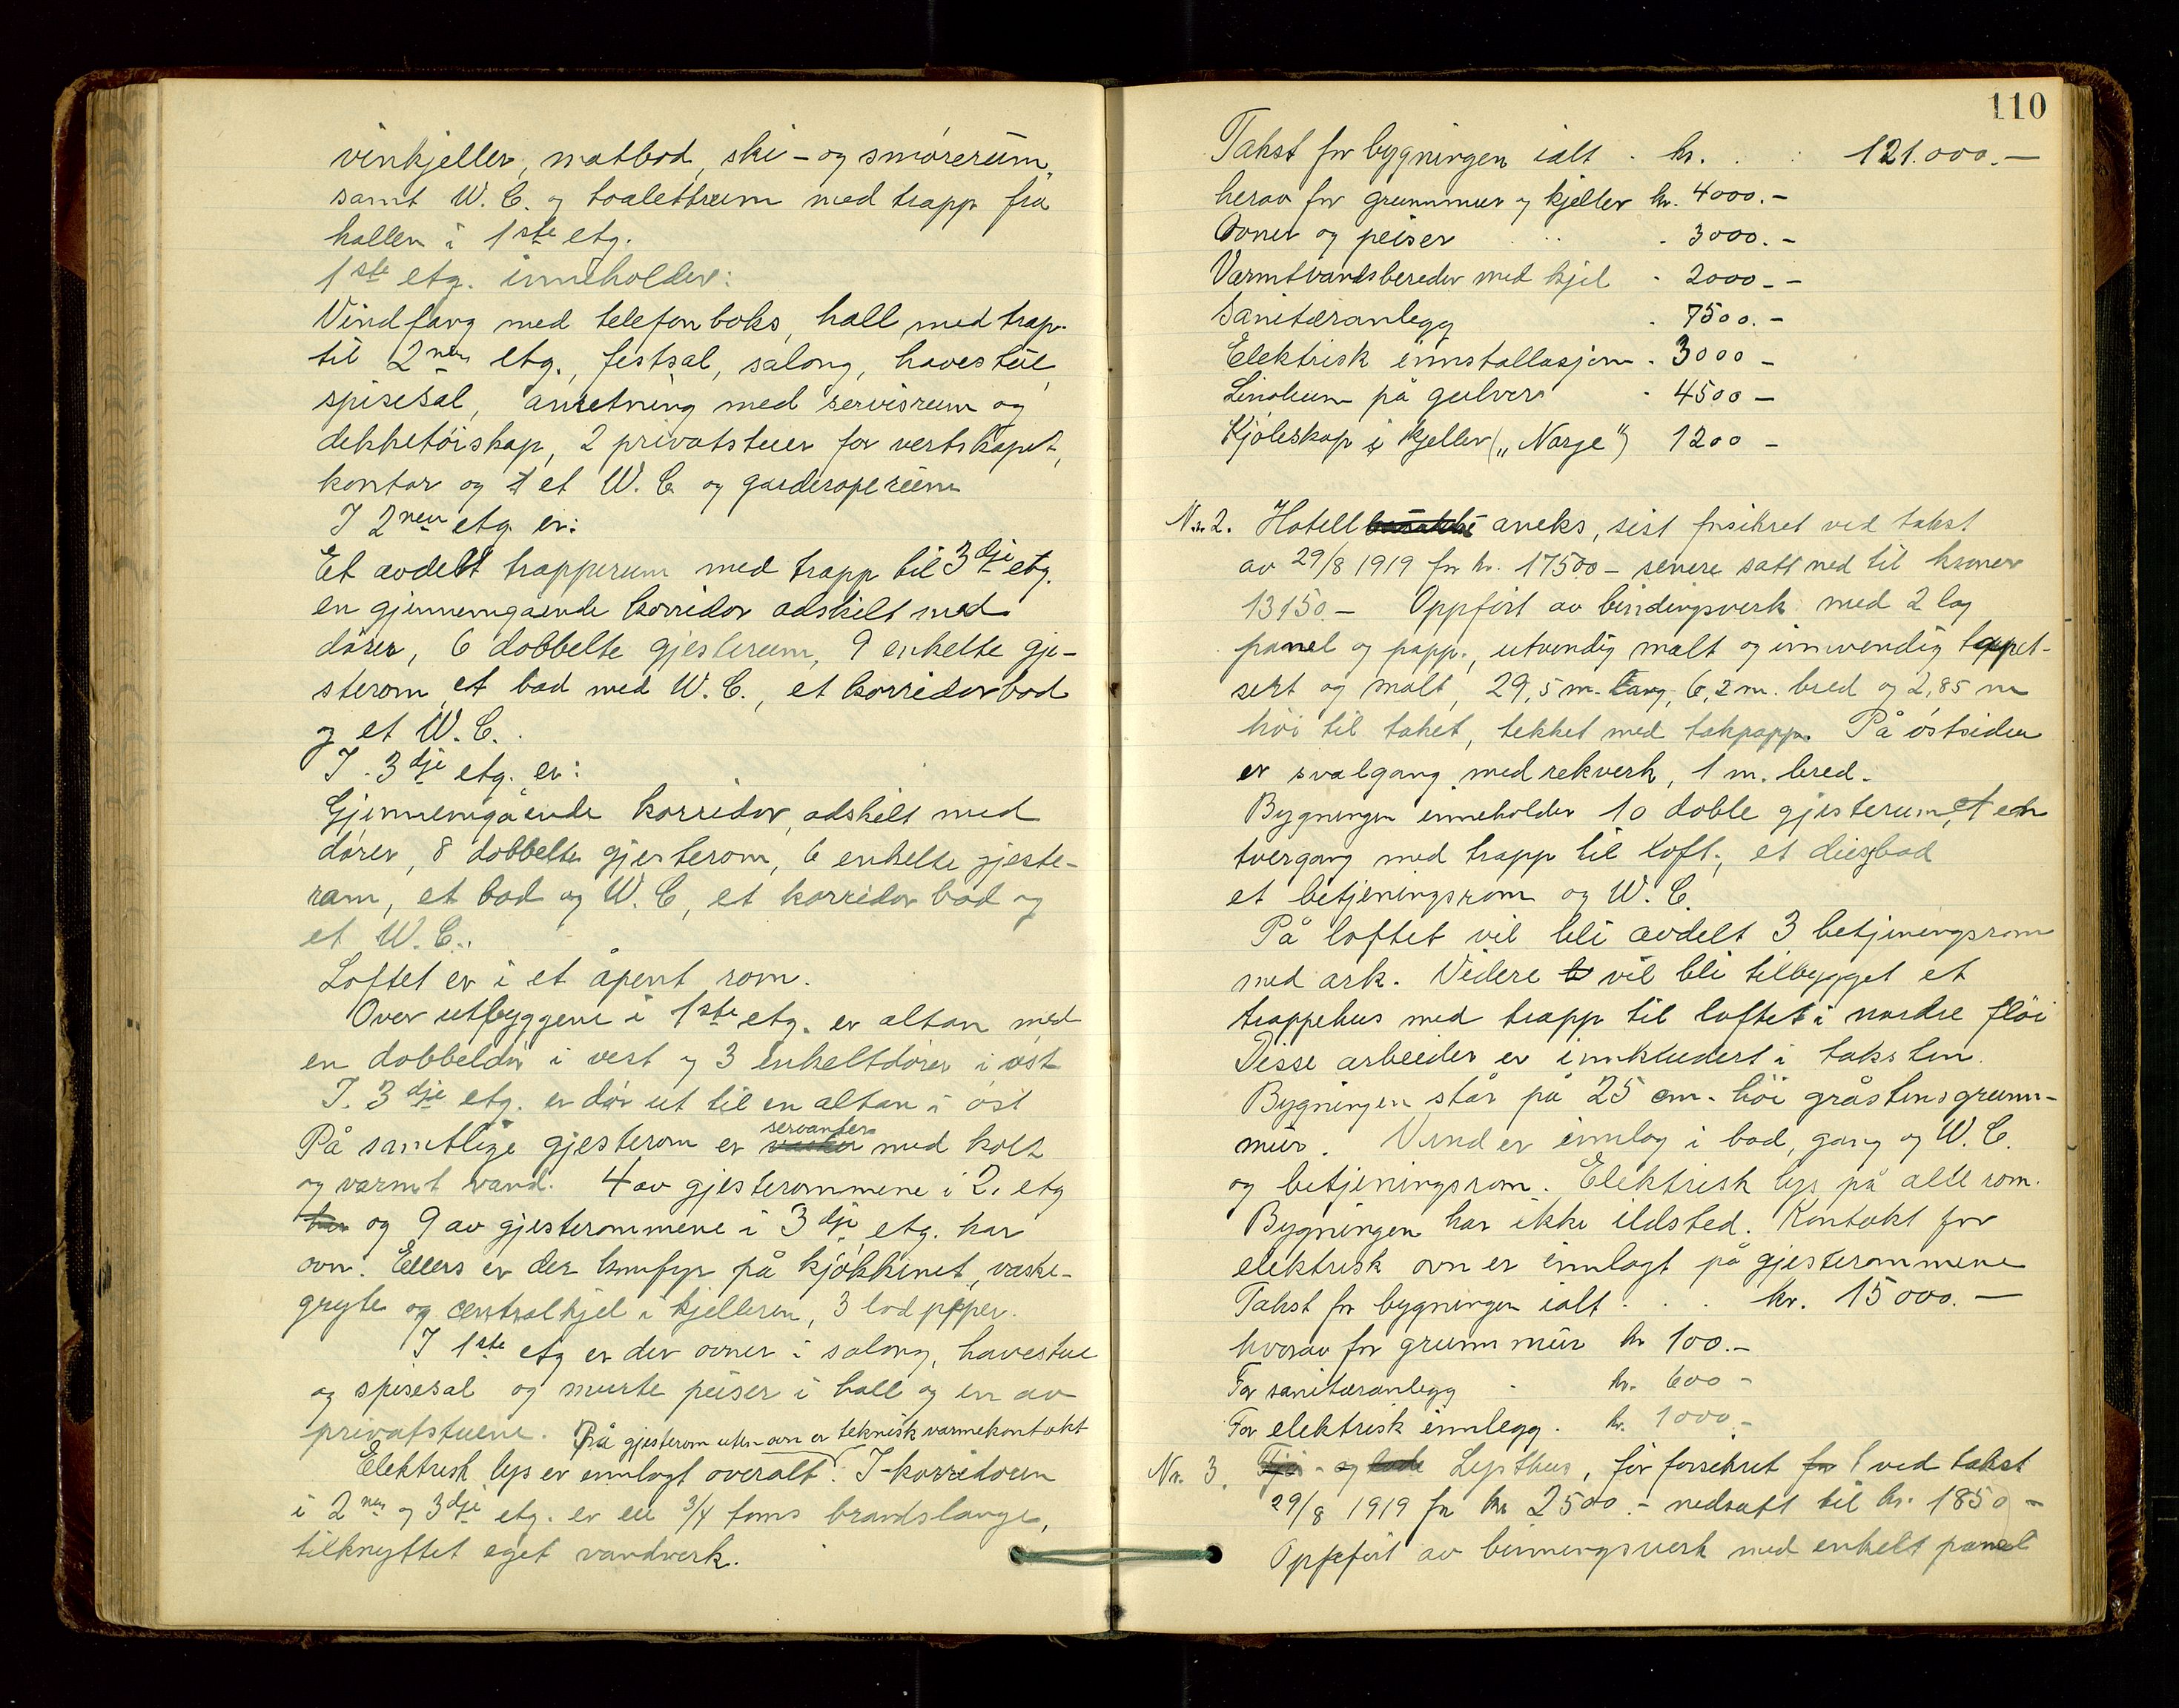 vinkjeller, matbod, ski- og smörerüm,
samt W. C. og toalettrum med trapp fra
hallen i 1ste etg.
1ste etg. inneholder:
Vindfang med telefonboks, hall med trap.
til 2nen etg., festsal, salong, havestue,
spisesal, anretning med servisrum og
dekketöiskap, 2 privatstuer for vertskapet,
kontor og et W. C. og garderoperüm
I 2nen etg. er:
Et avdelt trapperum med trapp til 3dje etg.
en gjennemgaaende korridor adskilt med
dörer, 6 dobbelte gjesterum, 9 enkelte gje-
sterom, et bad med W. C., et korridorbad
og et W. C.
I. 3dje etg. er:
Gjennemgående korridor, adskilt med
dörer, 8 dobbelte gjesterom, 6 enkelte gjeste-
rom, et bad og W. C, et korridor bad og
et W. C.
Loftet er i et åpent rom.
Over utbyggene i 1ste etg. er altan med
en dobbeldör i vest og 3 enkeltdörer i öst
I. 3dje etg. er dör ut til en altan i öst
På samtlige gjesterom er servanter med kolt
og varmt vand. 4 av gjesterommene i 2. etg
har og 9 av gjesterommene i 3dje etg. har
ovn. Ellers er der komfyr på kjökkenet, vaske-
gryte og centralkjel i kjelleren, 3 lod piper.
I 1ste etg er der ovner i salong, havestue
og spisesal og murte peiser i hall og en av
privatstuene. På gjesterom uten ovn er teknisk varmekontakt
Elektrisk lys er innlagt overalt. I korridoren
i 2nen og 3dje etg. er en 3/4 toms brandslange,
tilknyttet eget vandverk.
110
Takst for bygningen ialt . kr. . : 121.000.—
herav for grunnmur og kjeller kr. 4000.-
Ovner og peiser . . . . 3000.-
Varmtvandsbereder med kjel - 2000.-
Sanitæranlegg . 7500.-
Elektrisk innstallasjon . 3000 -
Linoleum på gulver . 4500 -
Kjöleskap i kjeller („Norge") 1200 -
Nr. 2. Hotell aneks, sist forsikret ved takst
av 29/8 1919 for kr. 17500 - senere satt ned til kroner
13150.- Oppfört av bindingsverk med 2 lag
panel og papp., utvendig malt og innvendig tappet-
sert og malt, 29,5 m. lang, 6,2 m. bred og 2,85 m
höi til taket, tekket med takpapp. På östsiden
er svalgang med rekverk, 1 m. bred.
Bygningen inneholder 10 doble gjesterum, en
tvergang med trapp til loft, et
et betjeningsrom og W. C.
På loftet vil bli avdelt 3 betjeningsrom
med ark. Videre vil bli tilbygget et
trappehus med trapp til loftet i nordre flöi
Disse arbeider er innkludert i taksten.
Bygningen står på 25 cm. höi gråstensgrunn-
mür. Vand er innlag i bad, gang og W. C.
og betjeningsrom. Elektrisk lys på alle rom.
Bygningen har ikke ildsted. Kontakt for
elektrisk ovn er innlagt på gjesterommene
Takst for bygningen ialt . . . kr. 15000.—
hvorav for grunnmür kr 100.-
For sanitæranlegg - kr. 600 -
For elektrisk innlegg. kr. 1000.-
Nr. 3. Fjös - og lade Lysthus, för forsikret for ved takst
29/8 1919 for kr 2500.- nedsatt til kr. 1850 -
Oppfört av binningsverk med enkelt panel